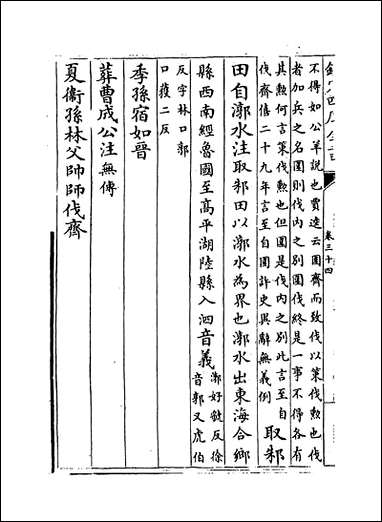 卷三十四
不得如公羊說也賈逵云圍齊而致伐以策伐勲也伐
者加兵之名圍則伐内之别圍伐終是一事不得各有
其勲何言策伐勲也但圍是伐内之别此言至自
伐齊僖二十九年言至自圍許史異辭無義例
取邾
田自漷水注取邾田以漷水為界也漷水出東海合鄉
縣西南經魯國至高平湖陸縣入泗音義
漷好虢反徐
音郭又虎伯
反字林口郭
口獲二反
季孫宿如晉
葬曹成公注無傳
夏衞孫林父帥師伐齊